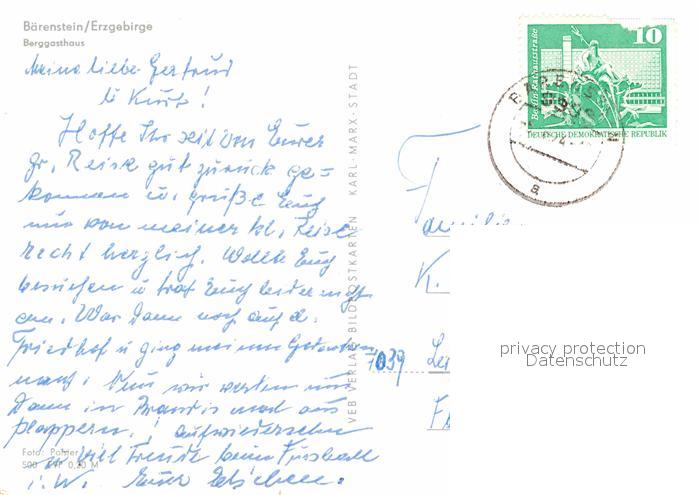 Bärenstein/Erzgebirge
Berggasthaus
Meine liebe Gertrud
u Kurt!
Hoffe Ihr seit von Eurer
gr. Reise gut zurück ge=
kommen u. grüße Euch
nun von meiner kl. Reise
recht herzlich. Wollte Euch
besuchen u traf Euch leider nicht
an. War dann noch auf d.
Friedhof u ging meinen Gedanken
nach. Nun wir werden uns
dann in Brandis mal aus
plappern! Aufwiedersehen
u viel Freude beim Fussball
i. W. Eure
Foto:
500 0,20 M
VEB VERLAG BILDPOSTKARTEN KARL-MARX-STADT
10
Berlin, Rathausstraße
DEUTSCHE DEMOKRATISCHE REPUBLIK
a
Familie
K.
7039 Lei
privacy protection
Datenschutz